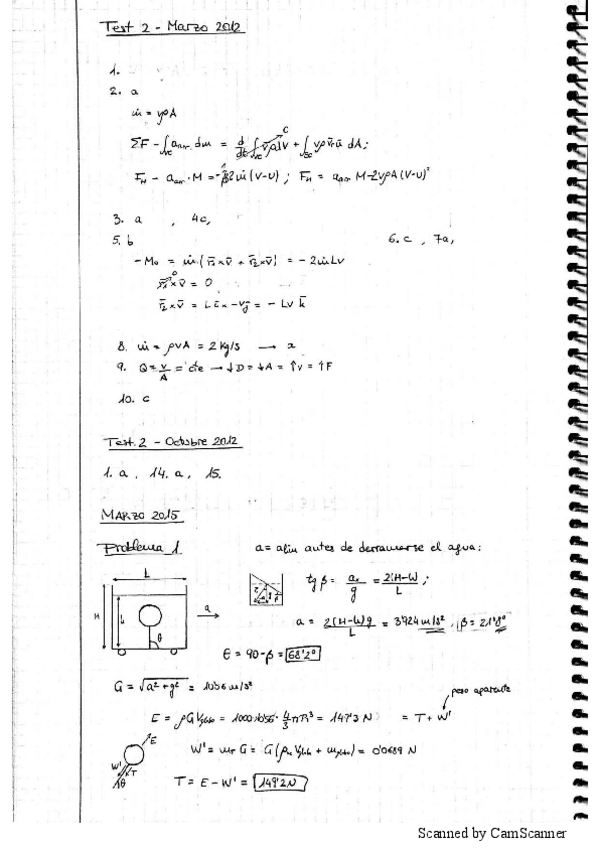 Test 2 - Marzo 2012
1.
2. a
ṁ = vρA
ΣF - ∫vc a_arr dm = d/dt ∫vc v̄ρdV + ∫sc vρ v̄r ū dA;
F_H - a_arr · M = -2ṁ(V-U) ; F_H = a_arr M - 2vρA(V-U)²
3. a , 4c,
5. b 6. c , 7a,
- M₀ = ṁ (r̄₁×v̄ + r̄₂×v̄) = -2ṁLv
r̄₁×v̄ = 0
r̄₂×v̄ = Lī × -vj̄ = - Lv k̄
8. ṁ = ρvA = 2 kg/s → a
9. Q = v/A = cte → ↓D = ↓A = ↑v = ↑F
10. c
Test 2 - Octubre 2012
1. a , 14. a , 15.
MARZO 2015
Problema 1 a = a lim antes de derramarse el agua:
L
tg β = aₓ/g = 2(H-W)/L ;
H
a
θ
a = 2(H-W)g/L = 3'924 m/s² , β = 21'8°
θ = 90 - β = 68'2°
G = √(a²+g²) = 10'56 m/s²
peso aparente
E = ρG Vglobo = 1000·10'56 · 4/3 πR³ = 147'3 N = T + W'
E
W' = m_T G = G(ρH Vglob + mglobo) = 0'0689 N
W' T
θ
T = E - W' = 149'2 N
Scanned by CamScanner